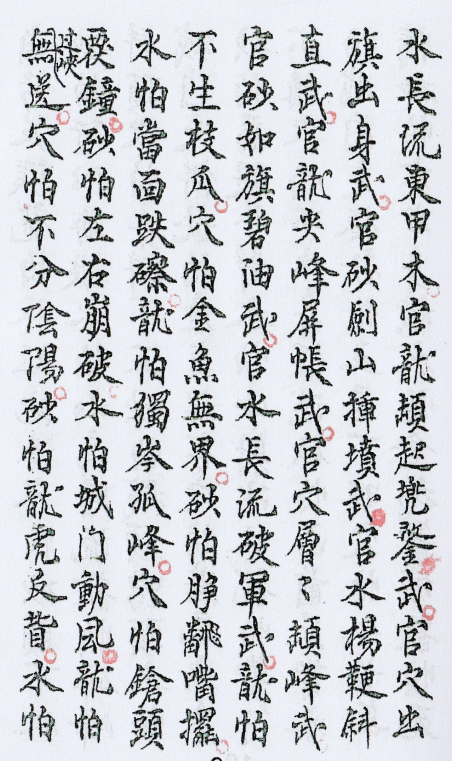 水長流東甲木官龍頭起兠鍪武官穴出
旗出身武官砂劍山揷墳武官水楊鞕斜
直武官龍尖峰屏帳武官穴層〻頭峰武
官砂如旗碧油武官水長流破軍武龍怕
不生枝瓜穴怕金魚無界砂怕腁翻嘴擺
水怕當面跌磜龍怕獨岺孤峰穴怕鎗頭
鐘砂怕左右崩破水怕城门動風龍怕
無過峽送穴怕不分陰陽砂怕龍虎反背水怕